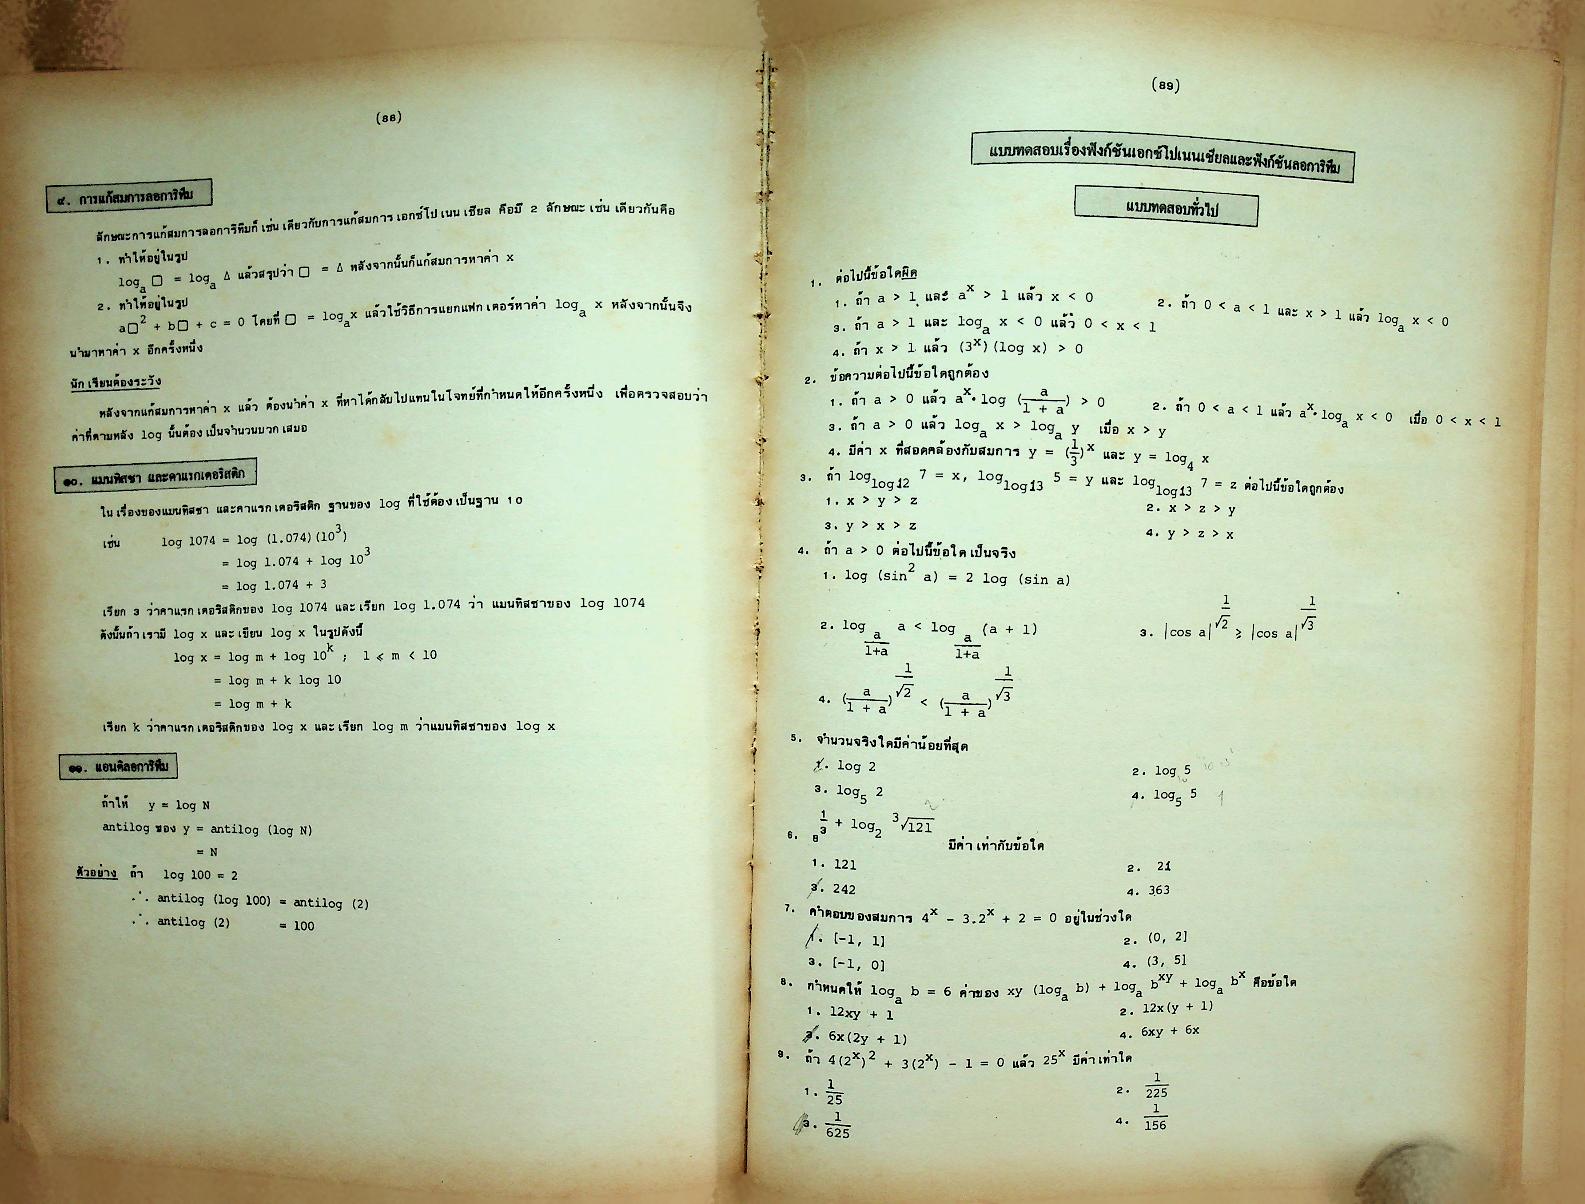 (88)
๙. การแก้สมการลอการิทึม
ลักษณะการแก้สมการลอการิทึมก็เช่นเดียวกับการแก้สมการเอกซ์โปเนนเชียล คือมี 2 ลักษณะเช่นเดียวกันคือ
1. ทำให้อยู่ในรูป
logₐ □ = logₐ Δ แล้วสรุปว่า □ = Δ หลังจากนั้นก็แก้สมการหาค่า x
2. ทำให้อยู่ในรูป
a□² + b□ + c = 0 โดยที่ □ = logₐx แล้วใช้วิธีการแยกแฟกเตอร์หาค่า logₐ x หลังจากนั้นจึง
นำมาหาค่า x อีกครั้งหนึ่ง
นักเรียนต้องระวัง
หลังจากแก้สมการหาค่า x แล้ว ต้องนำค่า x ที่หาได้กลับไปแทนในโจทย์ที่กำหนดให้อีกครั้งหนึ่ง เพื่อตรวจสอบว่า
ค่าที่ตามหลัง log นั้นต้องเป็นจำนวนบวกเสมอ
๑๐. แมนทิสซา และคาแรกเตอริสติก
ในเรื่องของแมนทิสซา และคาแรกเตอริสติก ฐานของ log ที่ใช้ต้องเป็นฐาน 10
เช่น log 1074 = log (1.074)(10³)
= log 1.074 + log 10³
= log 1.074 + 3
เรียก 3 ว่าคาแรกเตอริสติกของ log 1074 และเรียก log 1.074 ว่า แมนทิสซาของ log 1074
ดังนั้นถ้าเรามี log x และเขียน log x ในรูปดังนี้
log x = log m + log 10ᵏ ; 1 ⩽ m < 10
= log m + k log 10
= log m + k
เรียก k ว่าคาแรกเตอริสติกของ log x และเรียก log m ว่าแมนทิสซาของ log x
๑๑. แอนติลอการิทึม
ถ้าให้ y = log N
antilog ของ y = antilog (log N)
= N
ตัวอย่าง ถ้า log 100 = 2
∴ antilog (log 100) = antilog (2)
∴ antilog (2) = 100
(89)
แบบทดสอบเรื่องฟังก์ชันเอกซ์โปเนนเชียลและฟังก์ชันลอการิทึม
แบบทดสอบทั่วไป
1. ต่อไปนี้ข้อใดผิด
1. ถ้า a > 1 และ aˣ > 1 แล้ว x < 0 2. ถ้า 0 < a < 1 และ x > 1 แล้ว logₐ x < 0
3. ถ้า a > 1 และ logₐ x < 0 แล้ว 0 < x < 1
4. ถ้า x > 1 แล้ว (3ˣ)(log x) > 0
2. ข้อความต่อไปนี้ข้อใดถูกต้อง
1. ถ้า a > 0 แล้ว aˣ·log (a/(1 + a)) > 0 2. ถ้า 0 < a < 1 แล้ว aˣ·logₐ x < 0 เมื่อ 0 < x < 1
3. ถ้า a > 0 แล้ว logₐ x > logₐ y เมื่อ x > y
4. มีค่า x ที่สอดคล้องกับสมการ y = (1/3)ˣ และ y = log₄ x
3. ถ้า log_(log12) 7 = x, log_(log13) 5 = y และ log_(log13) 7 = z ต่อไปนี้ข้อใดถูกต้อง
1. x > y > z 2. x > z > y
3. y > x > z 4. y > z > x
4. ถ้า a > 0 ต่อไปนี้ข้อใดเป็นจริง
1. log (sin² a) = 2 log (sin a)
2. log_(a/(1+a)) a < log_(a/(1+a)) (a + 1) 3. |cos a|^(1/√2) ⩾ |cos a|^(1/√3)
4. (a/(1 + a))^(1/√2) < (a/(1 + a))^(1/√3)
5. จำนวนจริงใดมีค่าน้อยที่สุด
1. log 2 2. log 5
3. log₅ 2 4. log₅ 5
6. 8^(1/3 + log₂ ³√121) มีค่าเท่ากับข้อใด
1. 121 2. 21
3. 242 4. 363
7. คำตอบของสมการ 4ˣ - 3.2ˣ + 2 = 0 อยู่ในช่วงใด
1. [-1, 1] 2. (0, 2]
3. [-1, 0] 4. (3, 5]
8. กำหนดให้ logₐ b = 6 ค่าของ xy (logₐ b) + logₐ bˣʸ + logₐ bˣ คือข้อใด
1. 12xy + 1 2. 12x(y + 1)
3. 6x(2y + 1) 4. 6xy + 6x
9. ถ้า 4(2ˣ)² + 3(2ˣ) - 1 = 0 แล้ว 25ˣ มีค่าเท่าใด
1. 1/25 2. 1/225
3. 1/625 4. 1/156